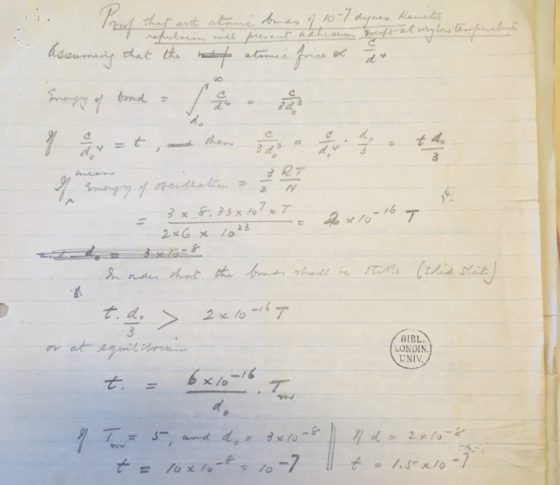 Proof that with atomic bonds of 10^-7 dynes Kinetic
repulsion will prevent adhesion except at very low temperatures
Assuming that the atomic force ∝ C/d^4
Energy of bond = ∫_{d₀}^{∞} C/d^4 = C/3d₀^3
If C/d₀^4 = t, then C/3d₀^3 = C/d₀^4 · d₀/3 = t d₀/3
If mean Energy of oscillation = 3/2 RT/N
= 3 x 8.33 x 10^7 x T / 2 x 6 x 10^23 = 2 x 10^-16 T
and d₀ = 3 x 10^-8
In order that the bonds shall be stable (solid state)
t. d₀/3 > 2 x 10^-16 T
or at equilibrium
BIBL.
LONDIN.
UNIV.
t. = 6 x 10^-16/d₀ . Tm
If Tm = 5, and d₀ = 3 x 10^-8 || If d = 2 x 10^-8
t = 10 x 10^-8 = 10^-7 t = 1.5 x 10^-7